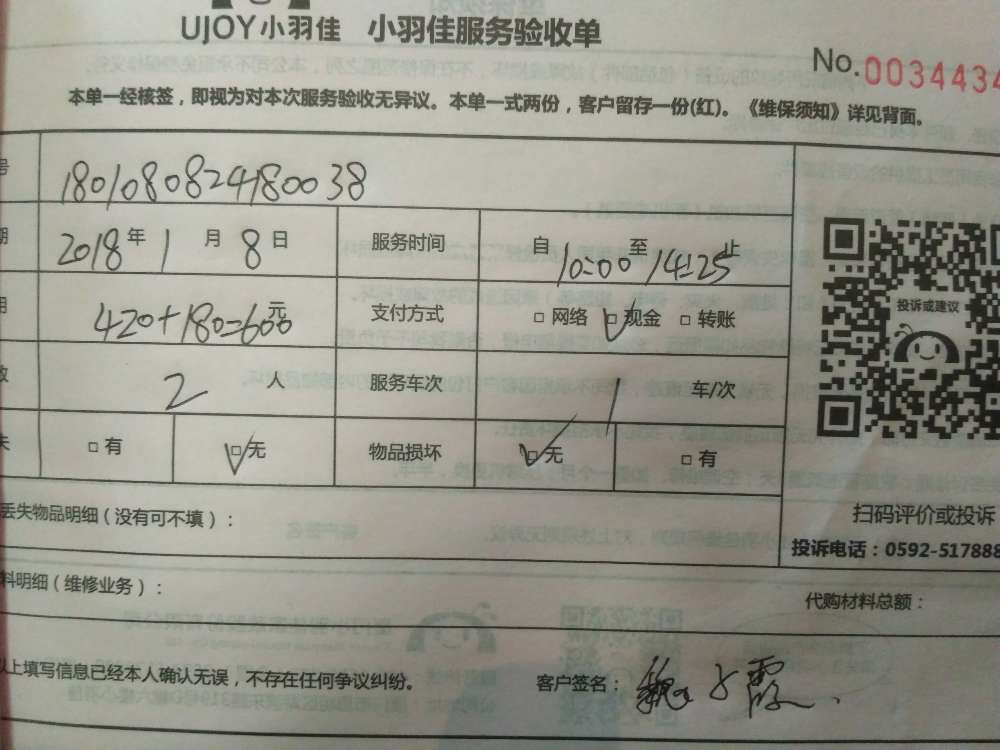 UJOY小羽佳 小羽佳服务验收单
No.0034434
本单一经核签，即视为对本次服务验收无异议。本单一式两份，客户留存一份(红)。《维保须知》详见背面。
号 1801080824180038
期 2018年1月8日 服务时间 自10:00至14:25止
用 420+180=600元 支付方式 □网络 ☑现金 □转账
数 2人 服务车次 1 车/次
失 □有 ☑无 物品损坏 ☑无 □有
投诉或建议
扫码评价或投诉
丢失物品明细（没有可不填）：
投诉电话：0592-517888
料明细（维修业务）：
代购材料总额：
以上填写信息已经本人确认无误，不存在任何争议纠纷。 客户签名：